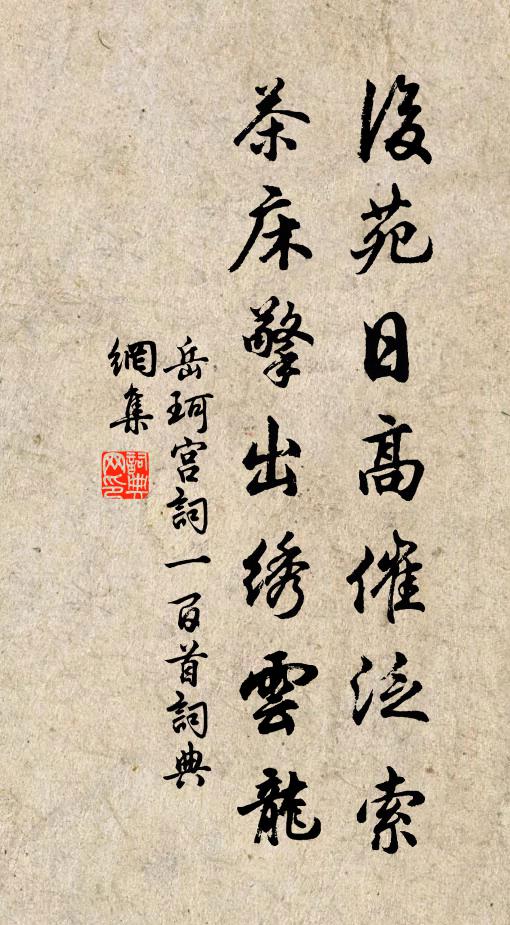 後苑日高催泛索
茶床擎出绣雲龍
岳珂宮詞一百首詞典
網集
詞典
网印